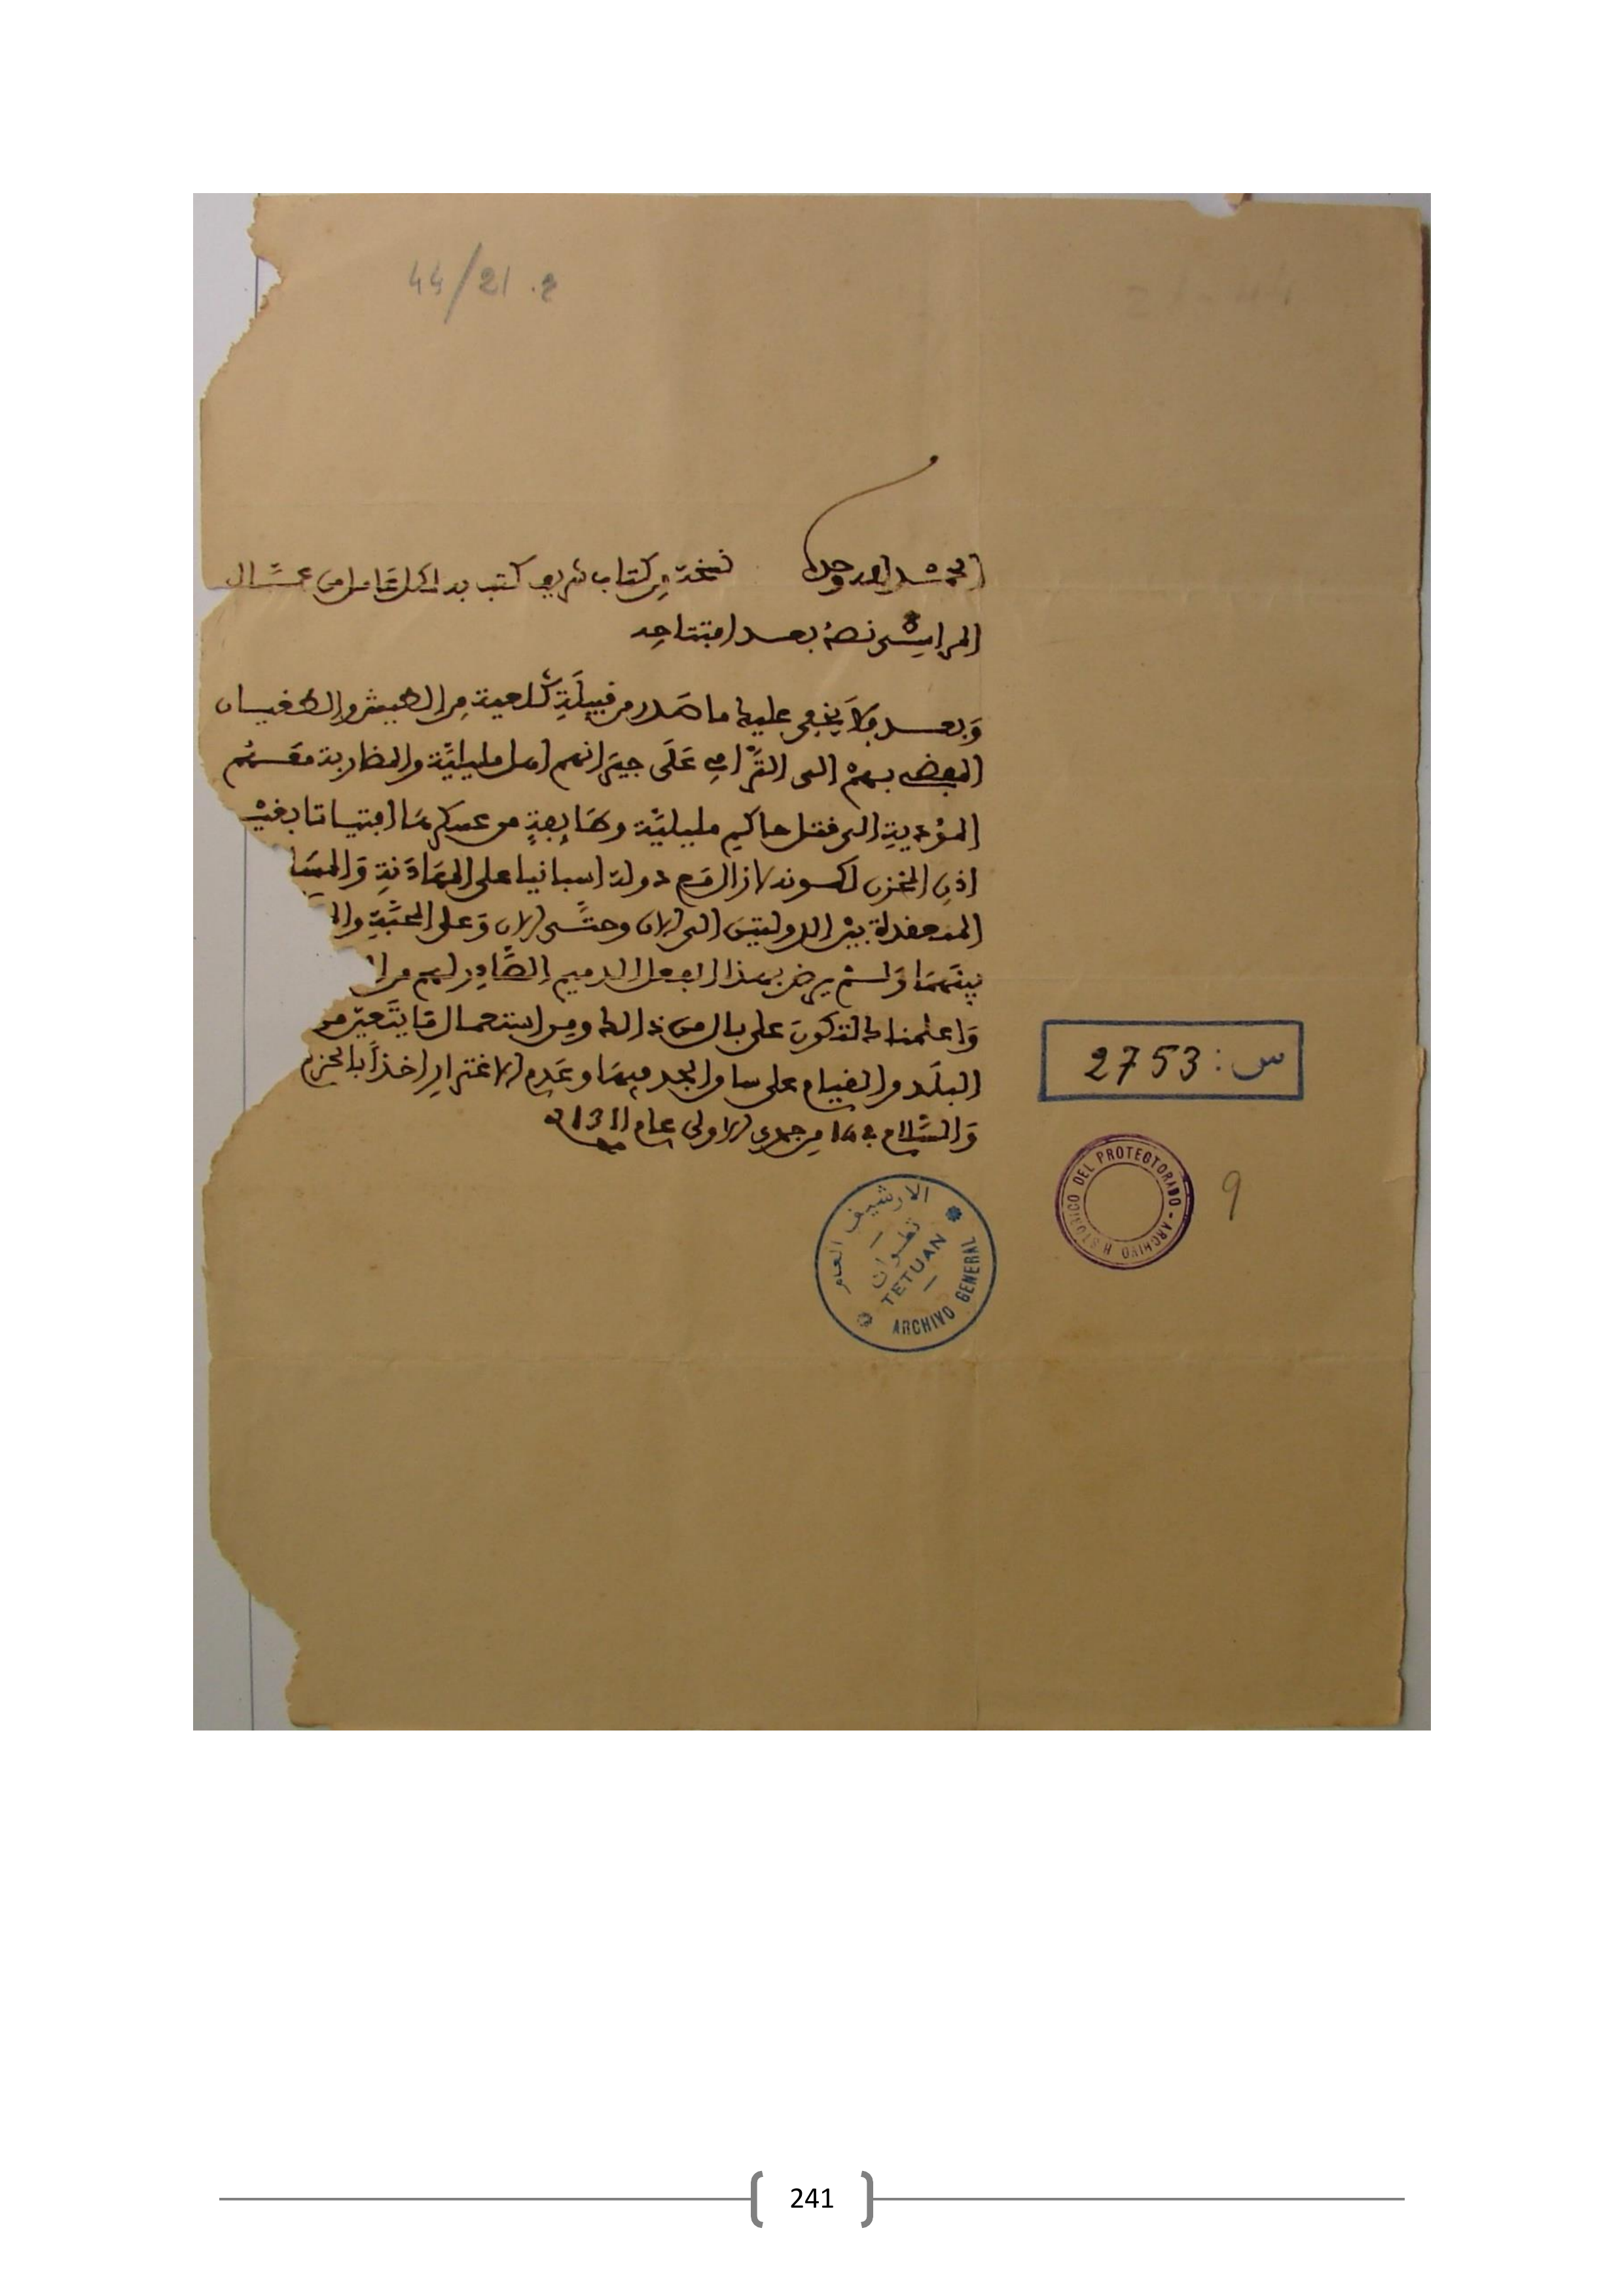 44/21 .2
الحمد لله وحده نسخة من كتاب شريف كتب به لكل عامل من عمال
المراسي نصه بعد افتتاحه
وَبعد فلا يخفى عليك ما صدر من قبيلَةِ كَلعية من الطيش والطغيان
المفضي بهمْ الى الترَامي عَلَى جيرَانهم اهل مليلِيَّة والمضاربة مَعَهُم
المؤدية الى قتل حاكم مليليَّة وطَايفةٍ من عسكرهَا افتياتا بغيْر
اذن المخزن لكونه لازال مَع دولة اسبانيا على المهَادَنةِ وَالمسَا
المنعقدة بيْن الدولتين الى الان وحتَّى الان وَعلى المحبَّةِ وال
بينَهمَا وَلمْ يرض بهذا الفعل الذميم الصَّادِر لهم من ال
وَاعلمناك لتكونَ على بال من ذالك ومن استعمال مَا يتَعيّن من
البلَد والقيام على ساق الجد فيهَا وعَدم الاغترارِ اخذاً بالحزم
وَالسَّلام في 14 من جمدى الاولى عام 1311
س: 2753
ARCHIVO HISTORICO DEL PROTECTORADO
9
الارشيف العام
تطوان
TETUAN
ARCHIVO GENERAL
241